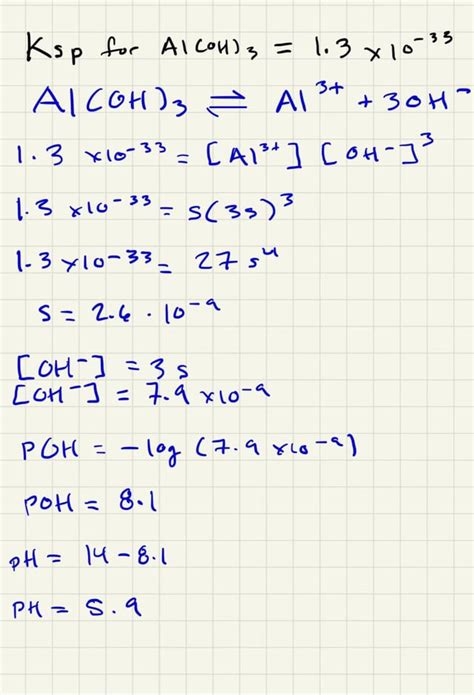 Ksp for Al(OH)₃ = 1.3 x10⁻³³
Al(OH)₃ ⇌ Al³⁺ + 3OH⁻
1.3 x10⁻³³ = [Al³⁺] [OH⁻]³
1.3 x10⁻³³ = s(3s)³
1.3 x10⁻³³ = 27 s⁴
s = 2.6 · 10⁻⁹
[OH⁻] = 3 s
[OH⁻] = 7.9 x10⁻⁹
POH = -log (7.9 x10⁻⁹)
POH = 8.1
pH = 14 - 8.1
PH = 5.9